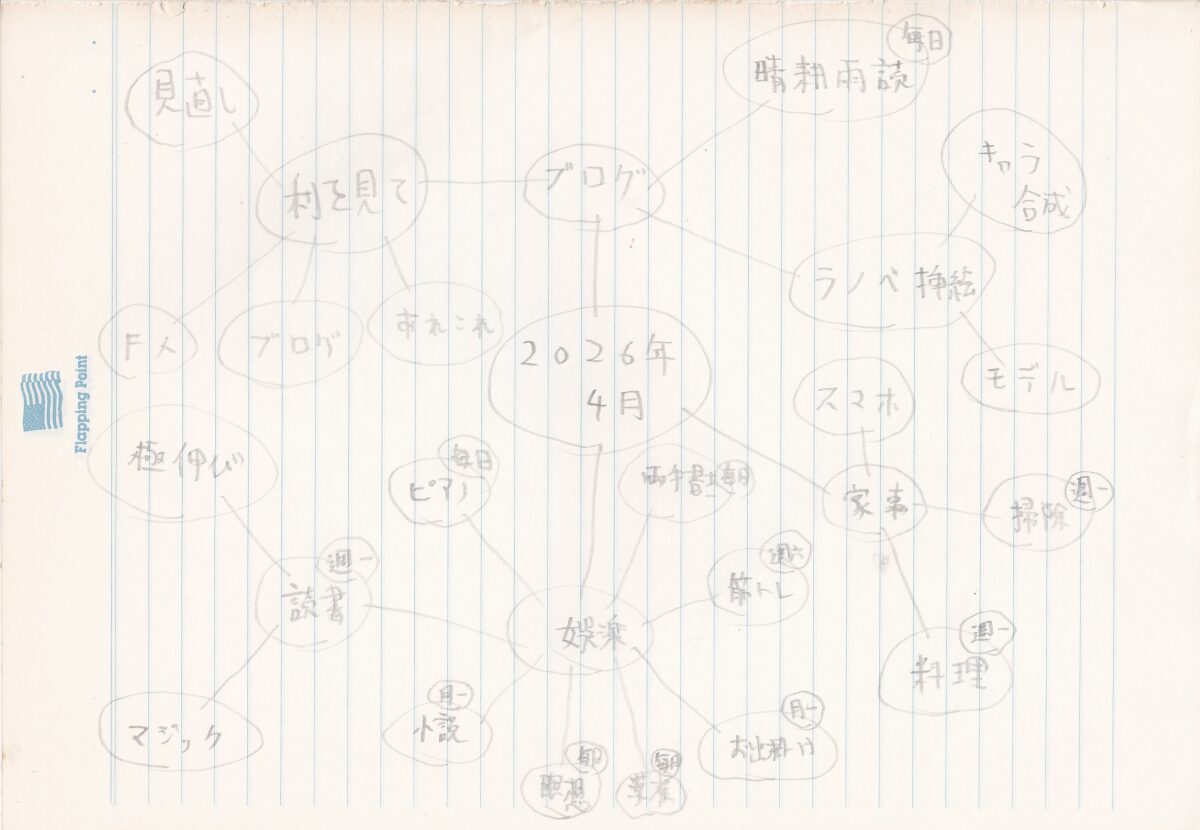 毎日
晴耕雨読
見直し
キャラ
合成
ブログ
利を見て
ラノベ挿絵
FX
ブログ
あれこれ
2026年
4月
モデル
スマホ
Flapping Point
極伸び
毎日
ピアノ
両手書き
毎日
家事
週一
掃除
週一
読書
週六
筋トレ
娯楽
週一
料理
月一
小説
月一
お出掛け
マジック
毎日
瞑想
毎日